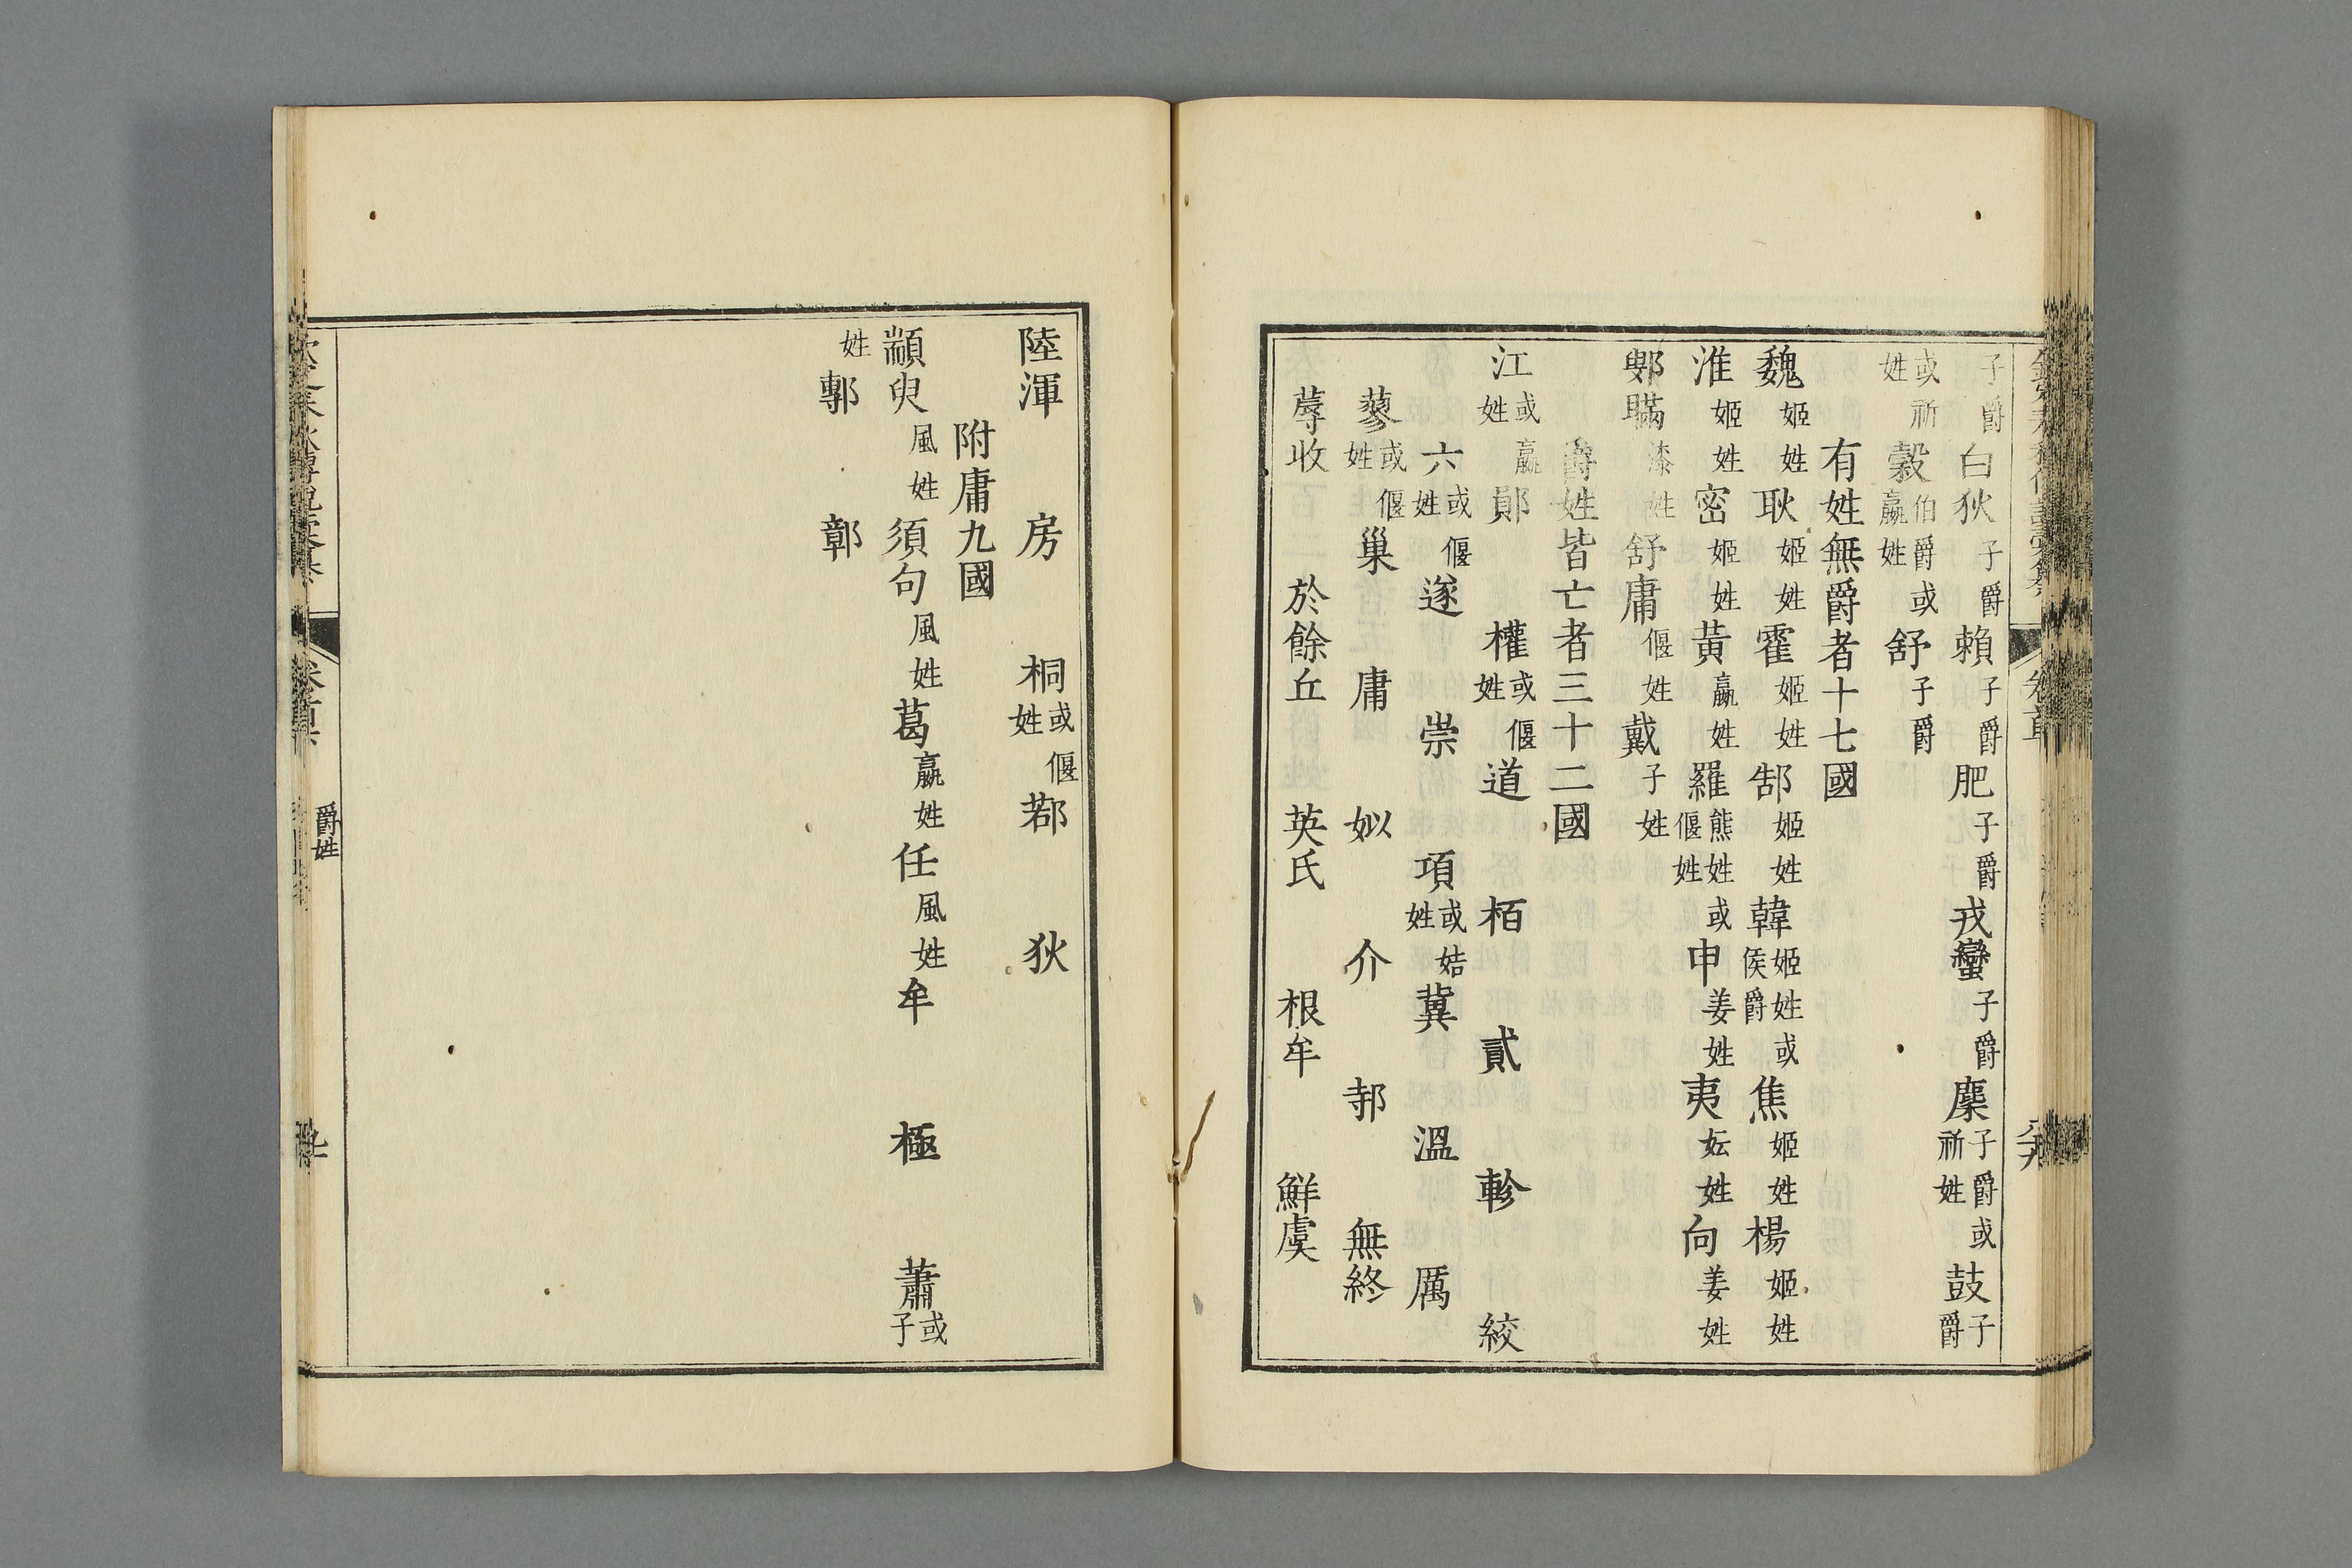 欽定春秋傳說彙纂 卷首
子爵 白狄子爵 賴子爵 肥子爵 戎蠻子爵 麇子爵或祈姓 鼓子爵
或祈姓 穀伯爵或嬴姓 舒子爵
有姓無爵者十七國
魏姬姓 耿姬姓 霍姬姓 郜姬姓 韓姬姓或侯爵 焦姬姓 楊姬姓
淮姬姓 密姬姓 黃嬴姓 羅熊姓或偃姓 申姜姓 夷妘姓 向姜姓
鄋瞞漆姓 舒庸偃姓 戴子姓
爵姓皆亡者三十二國
江或嬴姓 鄖 權或偃姓 道 栢 貳 軫 絞
六或偃姓 遂 崇 項或姞姓 冀 溫 厲
蓼或偃姓 巢 庸 姒 介 邿 無終
蓐收 於餘丘 英氏 根牟 鮮虞
陸渾 房 桐或偃姓 鄀 狄
附庸九國
顓臾風姓 須句風姓 葛嬴姓 任風姓 牟 極 蕭或子
姓 鄟 鄣
爵姓